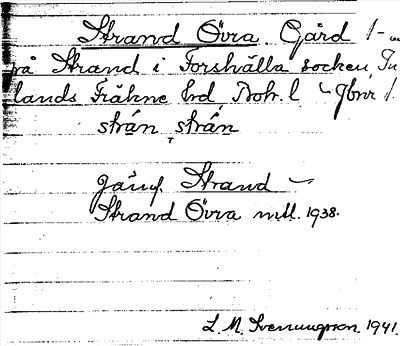 Strand Övra. Gård 1-
på Strand i Forshälla socken, In
lands Fräkne hd, Boh. l Jbnr 1.
strán, strán
Jämf. Strand
Strand Övra mtl. 1938.
L. M. Svenungsson. 1941.